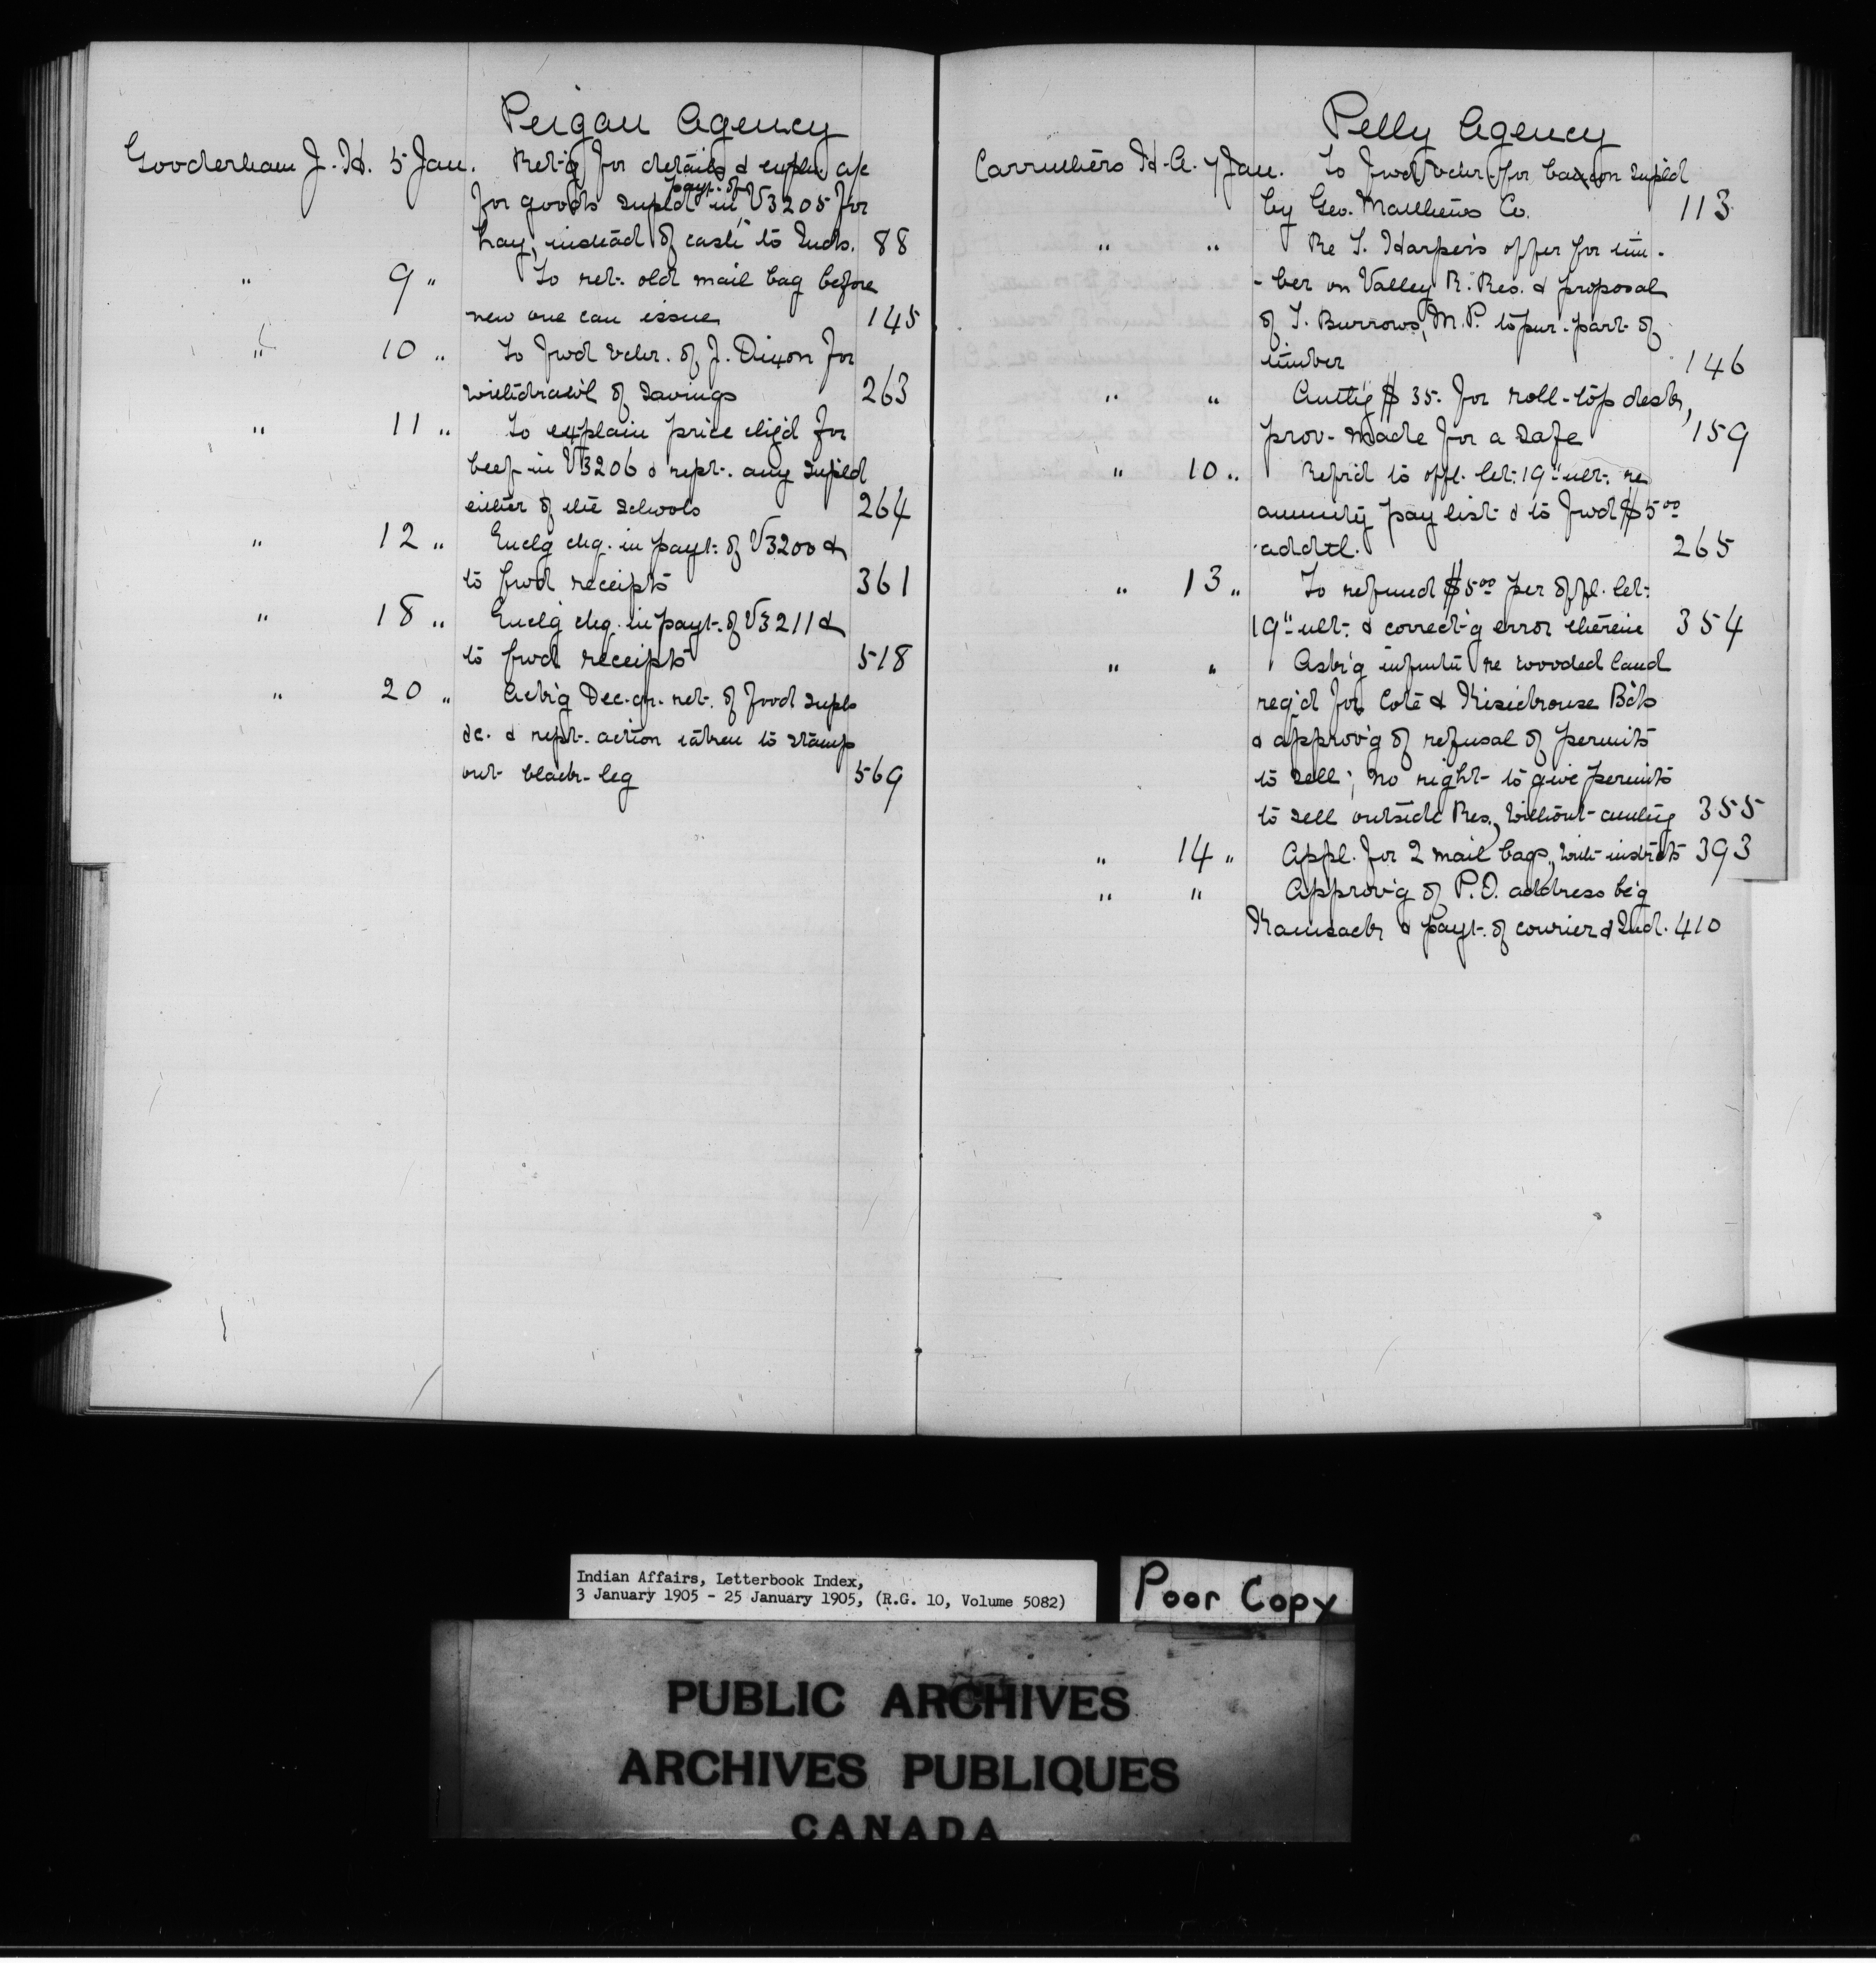 Peigan Agency
Gooderham J. H. 5 Jan. Ret'g for details & expln. a/c
payt. of
for goods supld in V3205 for
hay, instead of cash to Inds. 88
" 9 " To ret. old mail bag before
new one can issue 145
" 10 " To fwd vchr. of J. Dixon for
withdrawl of savings 263
" 11 " To explain price chg'd for
beef in V3206 & rept. any supld
either of the schools 264
" 12 " Enclg chq. in payt. of V3200 &
to fwd receipts 361
" 18 " Enclg chq. in payt. of V3211 &
to fwd receipts 518
" 20 " Ack'g Dec. qr. ret. of food supls
&c. & rept. action taken to stamp
out black-leg 569
Pelly Agency
Carruthers H. A. 7 Jan. To fwd vchr. for bacon supld
by Geo. Matthews Co. 113
" " Re T. Harper's offer for tim-
-ber on Valley R. Res. & proposal
of T. Burrows, M.P. to pur. part of
timber 146
" " Auth'g $35. for roll-top desk,
prov. made for a safe 159
" 10 " Refr'd to offl. let. 19" ult. re
annuity pay list & to fwd $5.00
addtl. 265
" 13 " To refund $5.00 per offl. let.
19" ult. & correct'g error therein 354
" " Ask'g infmtn re wooded land
req'd for Coté & Kisickouse Bds
& approv'g of refusal of permits
to sell; no right to give permits
to sell outside Res. without authy 355
" 14 " Appl. for 2 mail bags, with instrcts 393
" " Approv'g of P.O. address be'g
Kamsack & payt. of courier & Ind. 410
Indian Affairs, Letterbook Index,
3 January 1905 - 25 January 1905, (R.G. 10, Volume 5082)
Poor Copy
PUBLIC ARCHIVES
ARCHIVES PUBLIQUES
CANADA